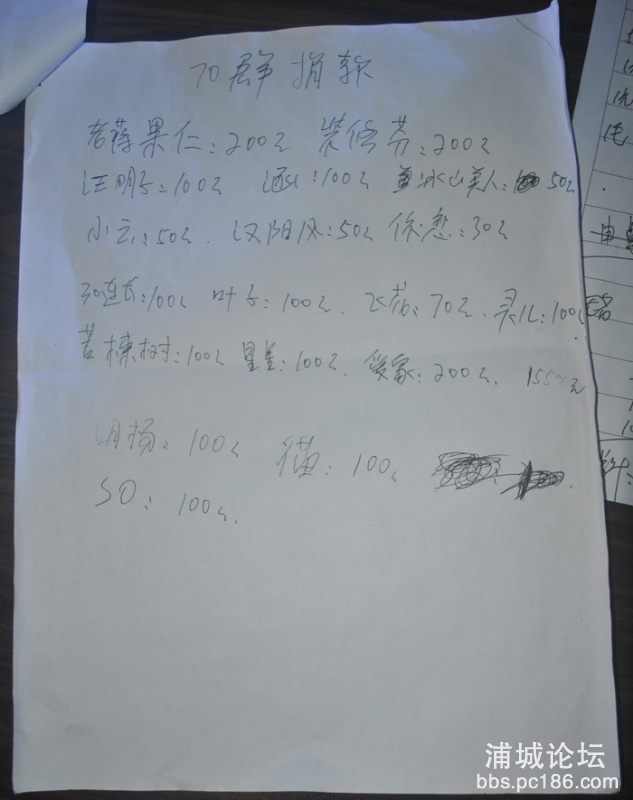 70群 捐款
果仁:200元 装修芬:200元
汪明子:100元 :100元 冰山美人: 50元
小云:50元. 汉阳风:50元 徐悲:30元
连长:100元 叶子:100元. 飞花:70元. 灵儿:100元
苦楝树:100元 星星:100元. 爱家:200元. 1550元
明扬:100元 猫:100元
SO:100元.
浦城论坛
bbs.pc186.com